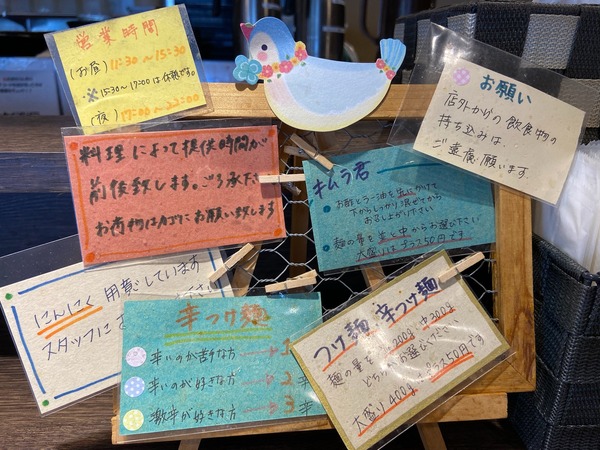 営業時間
(お昼) 11:30～15:30
※15:30～17:00は休憩です。
(夜) 17:00～22:00
お願い
店外からの飲食物の
持ち込みは
ご遠慮願います。
料理によって提供時間が
前後致します。ご了承下さい
お荷物はカゴにお願い致します
キムラ君
お酢とラー油を先にかけて
下からしっかり混ぜてから
お召し上がり下さい
麺の量を並と中からお選び下さい
大盛りはプラス50円です
にんにく用意しています
スタッフに
辛つけ麺
辛いのが苦手な方 1
辛いのが好きな方 2辛
激辛が好きな方 3辛
つけ麺 辛つけ麺
麺の量を 並200g 中300g
どちらかお選びください
大盛り400gはプラス50円です